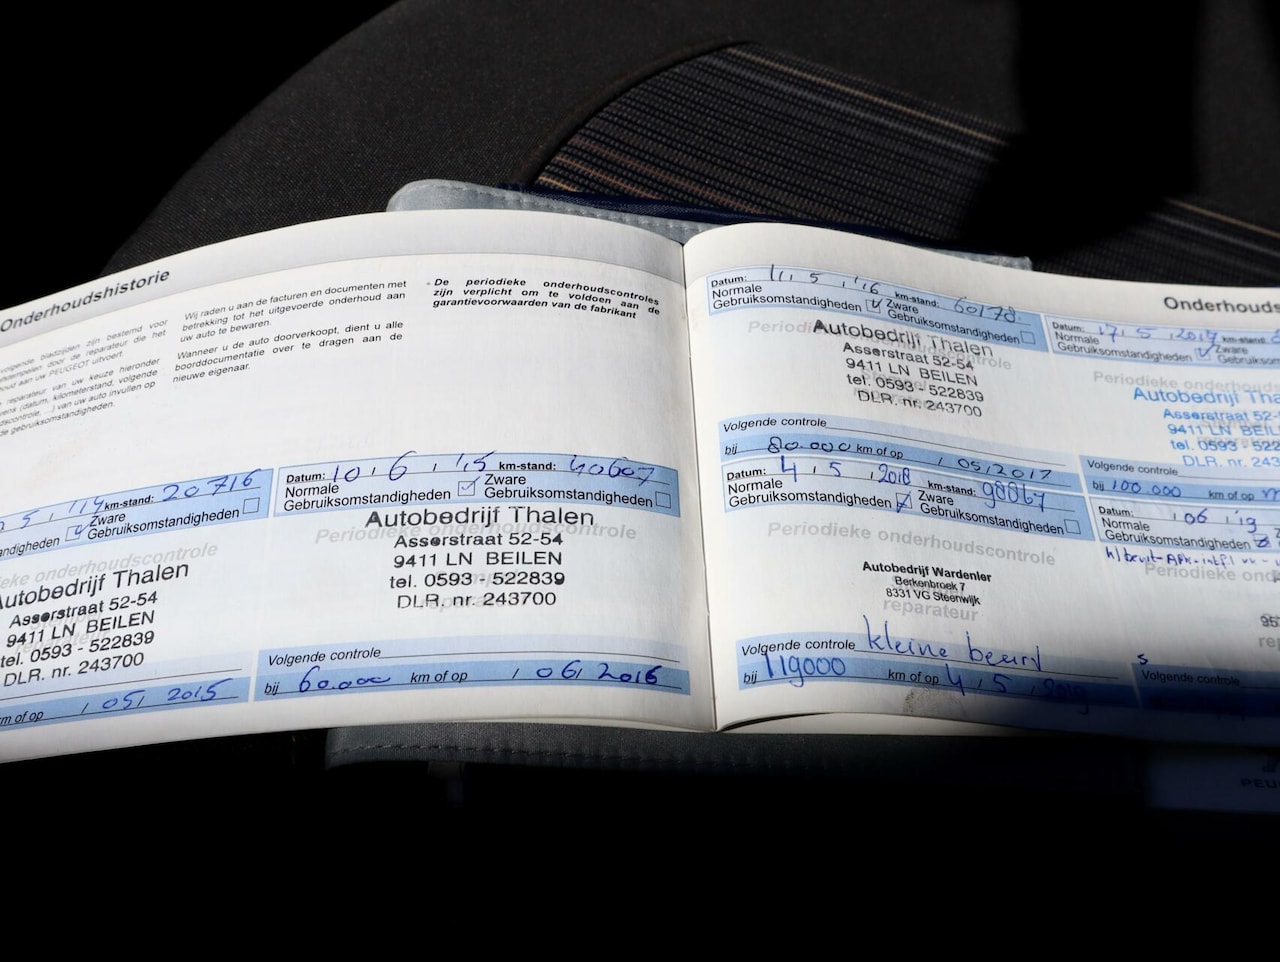 Onderhoudshistorie
bladzijden zijn bestemd voor
door de reparateur die het
aan uw PEUGEOT uitvoert.
reparateur van uw keuze hieronder
(datum, kilometerstand, volgende
van uw auto invullen op
gebruiksomstandigheden.
Wij raden u aan de facturen en documenten met
betrekking tot het uitgevoerde onderhoud aan
uw auto te bewaren.
Wanneer u de auto doorverkoopt, dient u alle
boorddocumentatie over te dragen aan de
nieuwe eigenaar.
De periodieke onderhoudscontroles
zijn verplicht om te voldoen aan de
garantievoorwaarden van de fabrikant
5 , '14 km-stand: 20716
Zware
Gebruiksomstandigheden
onderhoudscontrole
Autobedrijf Thalen
Asserstraat 52-54
9411 LN BEILEN
tel. 0593 - 522839
DLR. nr. 243700
km of op / 05 / 2015
Datum: 10 , 6 , '15 km-stand: 40607
Normale Zware
Gebruiksomstandigheden Gebruiksomstandigheden
Periodieke onderhoudscontrole
Autobedrijf Thalen
Asserstraat 52-54
9411 LN BEILEN
tel. 0593 - 522839
DLR. nr. 243700
reparateur
Volgende controle
bij 60.000 km of op / 06 / 2016
Onderhouds
Datum: 11 , 5 , '16 km-stand: 60178
Normale Zware
Gebruiksomstandigheden Gebruiksomstandigheden
Autobedrijf Thalen
Asserstraat 52-54
9411 LN BEILEN
tel. 0593 - 522839
DLR. nr. 243700
Volgende controle
bij 80.000 km of op / 05 / 2017
Datum: 17 , 5 , 2017 km-stand:
Normale Zware
Gebruiksomstandigheden Gebruiksomst
Periodieke onderhoudscontrole
Autobedrijf Tha
Asserstraat 52-
9411 LN BEIL
tel. 0593 - 522
DLR. nr. 243
Volgende controle
bij 100.000 km of op
Datum: 4 , 5 , 2018 km-stand: 98867
Normale Zware
Gebruiksomstandigheden Gebruiksomstandigheden
Periodieke onderhoudscontrole
Autobedrijf Wardenier
Berkenbroek 7
8331 VG Steenwijk
reparateur
Volgende controle kleine beurt
bij 119000 km of op 4 , 5 , 2019
Datum: , 06 , '19
Normale
Gebruiksomstandigheden
Periodieke onde
Volgende controle